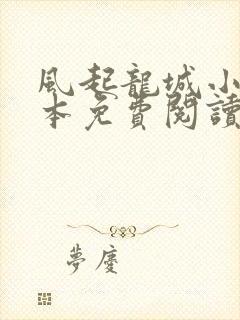 風起龍城小
本免費閱讀
夢廈